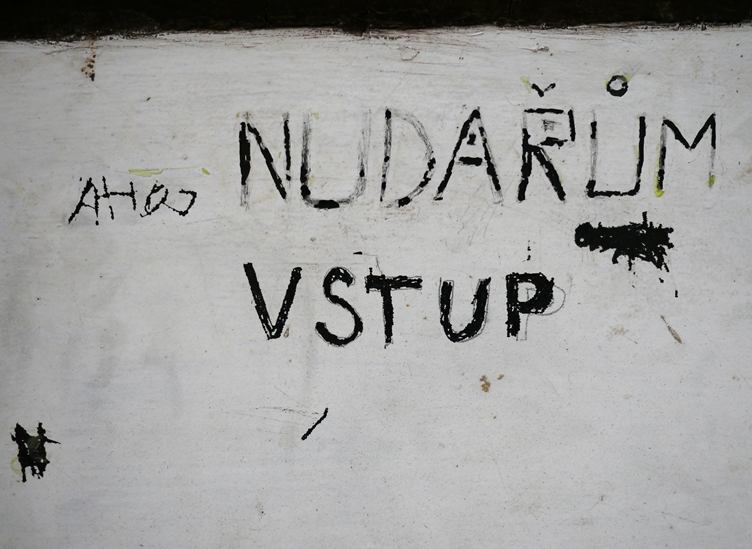 NUDAŘŮM
AHOJ
VSTUP